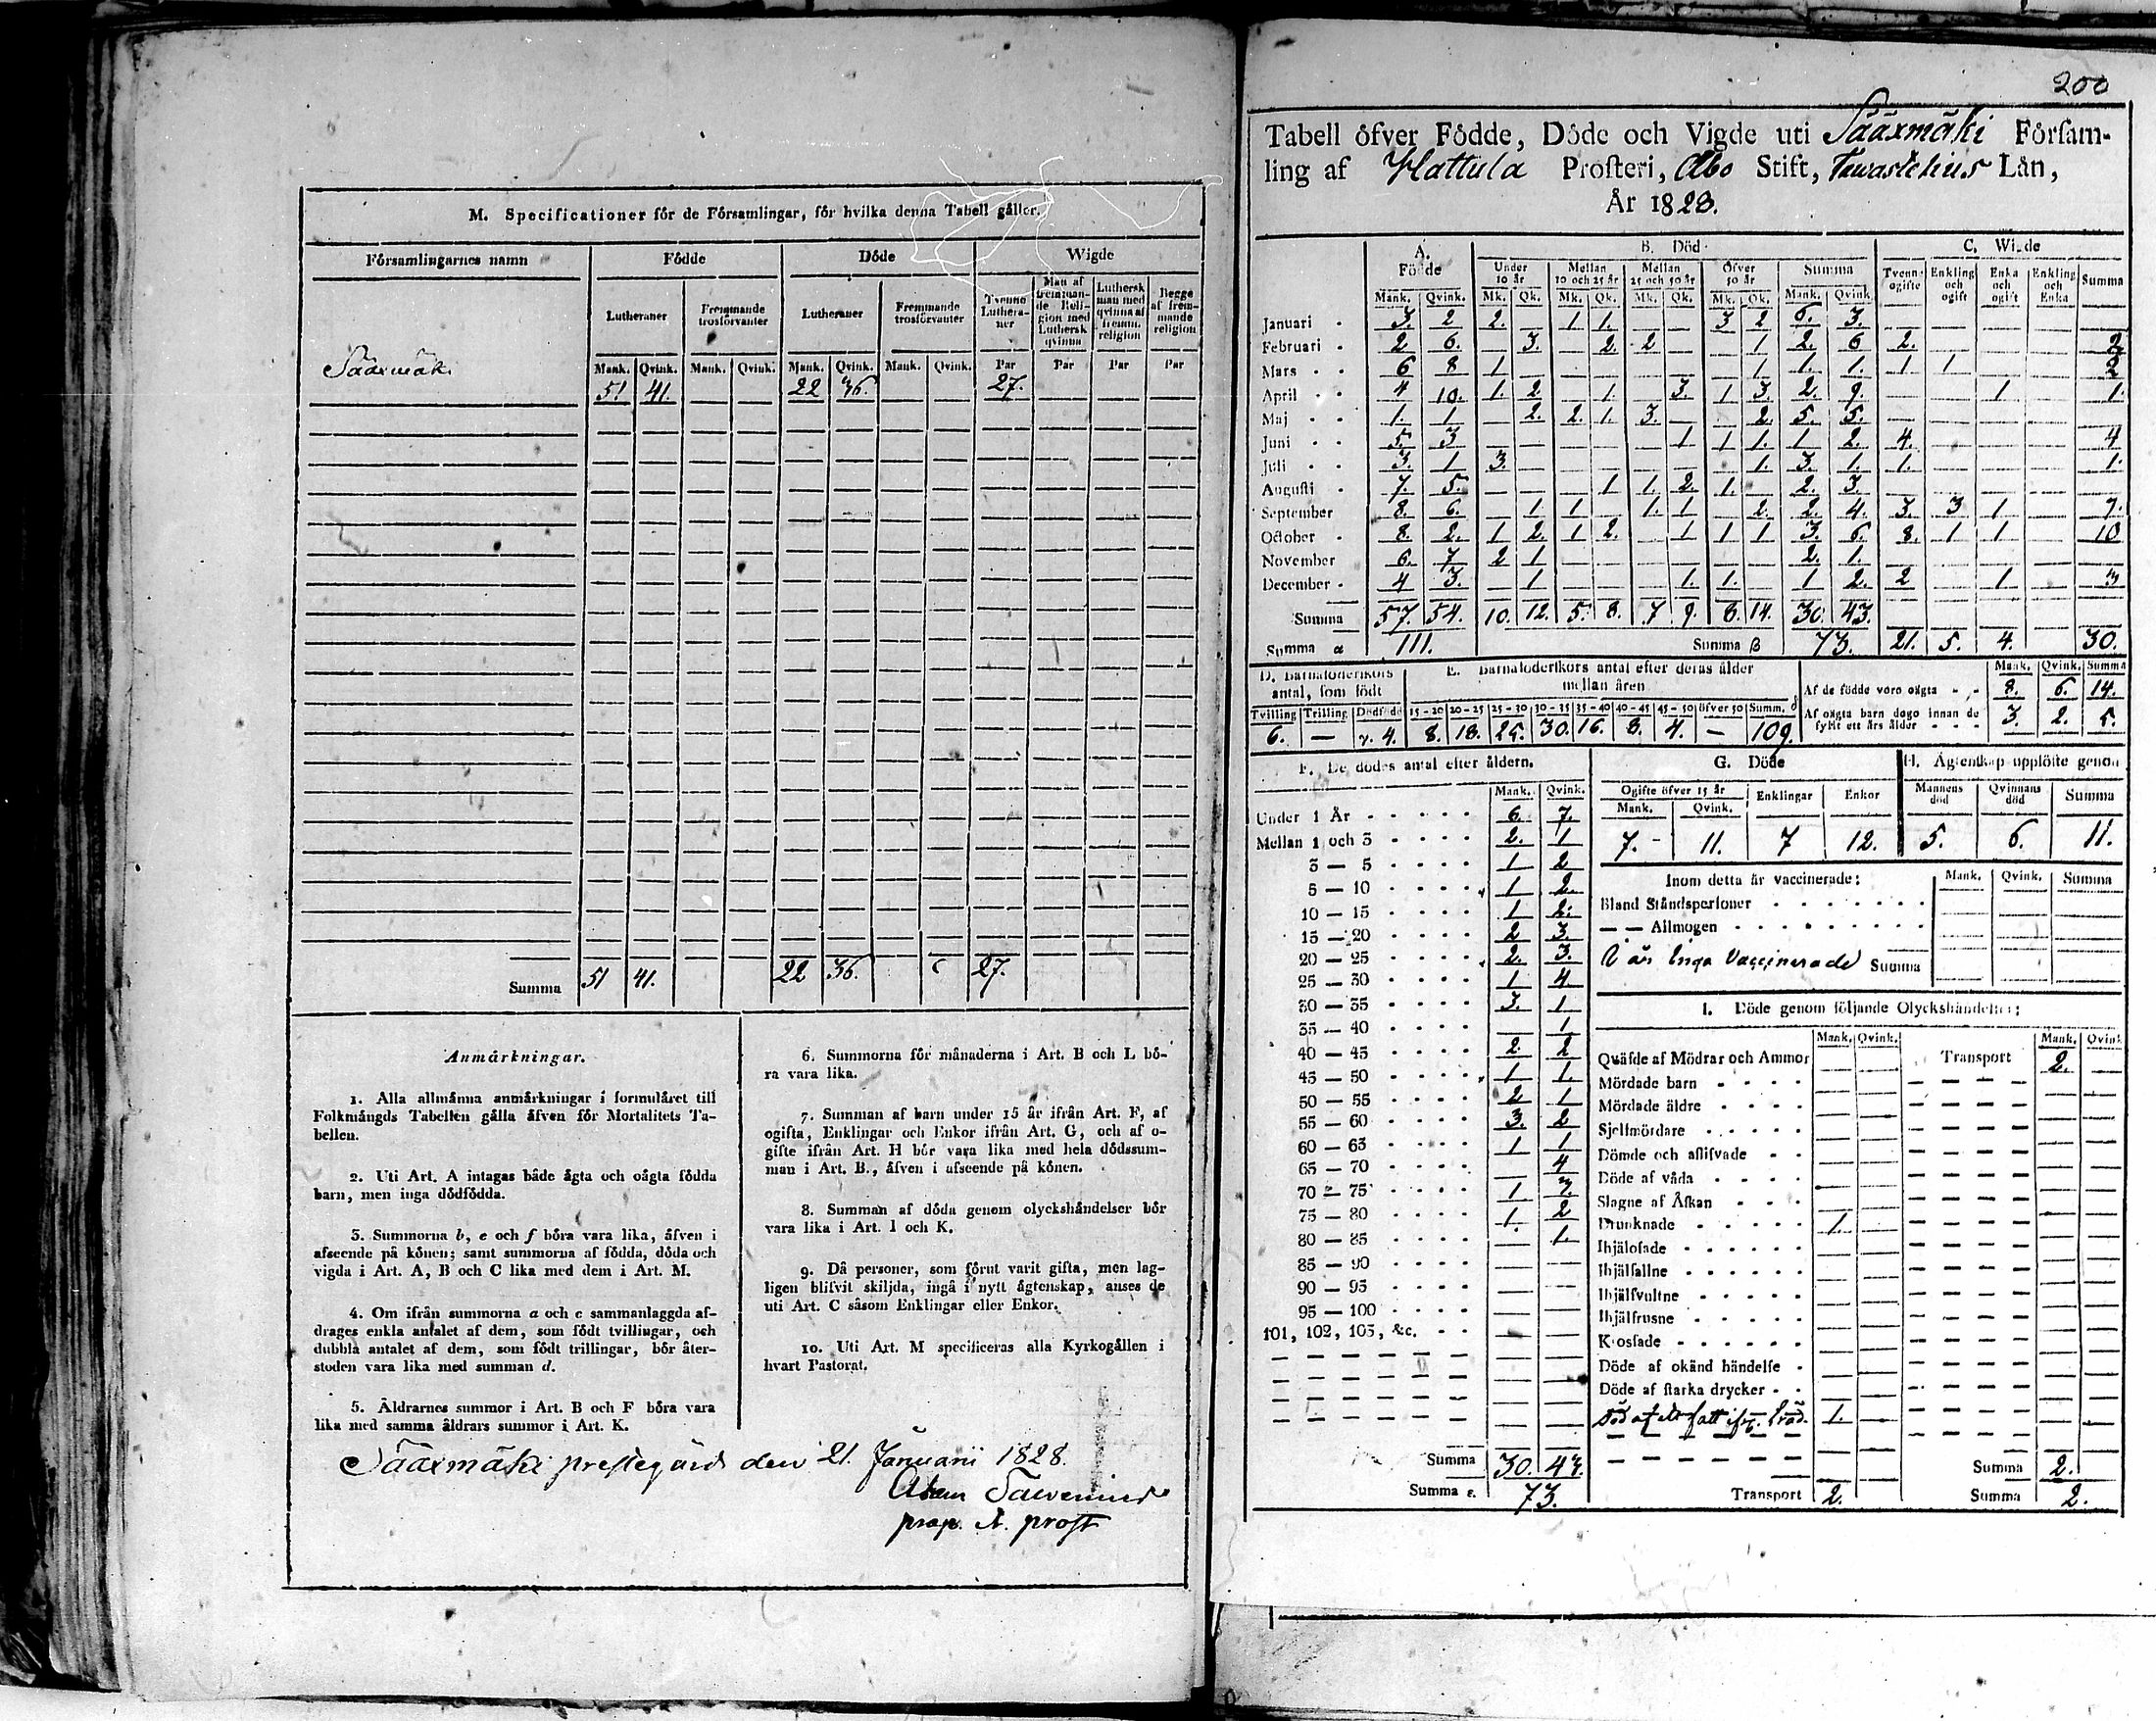 M. Specificationer för de Församlingar, för hvilka denna Tabell gäller.
Församlingarnes namn Födde Döde Wigde
Lutheraner Fremmande trosförvanter Lutheraner Fremmande trosförvanter Tvenne Lutheraner Man af fremmande Religion med Luthersk qvinna Luthersk man med qvinna af fremm. religion Begge af fremmande religion
Mank. Qvink. Mank. Qvink. Mank. Qvink. Mank. Qvink. Par Par Par Par
Sääxmäki 51 41. 22 36. 27.
Summa 51 41. 22 36. 27.
Anmärkningar.
1. Alla allmänna anmärkningar i formuläret till
Folkmängds Tabellen gälla äfven för Mortalitets Ta-
bellen.
2. Uti Art. A intagas både ägta och oägta födda
barn, men inga dödfödda.
3. Summorna b, e och f böra vara lika, äfven i
afseende på könen; samt summorna af födda, döda och
vigda i Art. A, B och C lika med dem i Art. M.
4. Om ifrån summorna a och c sammanlaggda af-
drages enkla antalet af dem, som födt tvillingar, och
dubbla antalet af dem, som födt trillingar, bör åter-
stoden vara lika med summan d.
5. Äldrarnes summor i Art. B och F böra vara
lika med samma äldrars summor i Art. K.
6. Summorna för månaderna i Art. B och L bö-
ra vara lika.
7. Summan af barn under 15 år ifrån Art. F, af
ogifta, Enklingar och Enkor ifrån Art. G, och af o-
gifte ifrån Art. H bör vara lika med hela dödssum-
man i Art. B., äfven i afseende på könen.
8. Summan af döda genom olyckshändelser bör
vara lika i Art. I och K.
9. Då personer, som förut varit gifta, men lag-
ligen blifvit skiljda, ingå i nytt ägtenskap, anses de
uti Art. C såsom Enklingar eller Enkor.
10. Uti Art. M specificeras alla Kyrkogällen i
hvart Pastorat.
Sääxmäki prestegård den 21. Januarii 1828.
prost
200
Tabell öfver Födde, Döde och Vigde uti Sääxmäki Försam-
ling af Hattula Prosteri, Åbo Stift, Tawastehus Län,
År 1823.
A. Födde B. Död C. Wigde
Under 10 år Mellan 10 och 25 år Mellan 25 och 50 år Öfver 50 år Summa Tvenne ogifte Enkling och ogift Enka och ogift Enkling och Enka Summa
Mank. Qvink. Mk. Qk. Mk. Qk. Mk. Qk. Mk. Qk. Mank. Qvink.
Januari 3. 2 2. 1 1. 3 2 6. 3.
Februari 2 6. 3. 2. 2 1 2. 6 2. 2
Mars 6 8 1 1 1. 1. 1 1 2
April 4 10. 1. 2. 1. 3. 1 3. 2. 9. 1 1.
Maj 1. 1 2. 2. 1. 3. 2. 5. 5.
Juni 5. 3 1 1 1. 1 2. 4. 4
Juli 3. 1 3. 1. 3. 1. 1. 1.
Augusti 7. 5. 1 1. 2. 1. 2. 3.
September 8. 6. 1 1 1. 1 2. 2. 4. 3. 3 1 7.
October 8. 2. 1 2. 1 2. 1 1 1 3. 6. 8. 1 1 10
November 6. 7. 2 1 2. 1.
December 4 3. 1 1. 1. 1 2. 2 1 3
Summa 57. 54. 10. 12. 5. 8. 7 9. 8. 14. 30. 43.
Summa a 111. Summa B 73. 21. 5. 4. 30.
D. Barnaföderskors antal, som födt
Tvilling Trilling Dödfödde
6. — 4.
E. Barnaföderskors antal efter deras ålder mellan åren
15-20 20-25 25-30 30-35 35-40 40-45 45-50 öfver 50 Summ. d
8. 18. 25. 30. 16. 8. 4. — 109.
Mank. Qvink. Summa
Af de födde voro oägta 8. 6. 14.
Af oägta barn dogo innan de fyllt ett års ålder 3. 2. 5.
F. De dödes antal efter åldern.
Mank. Qvink.
Under 1 År 6. 7.
Mellan 1 och 3 2. 1
3 — 5 1 2
5 — 10 1 2.
10 — 15 1 2.
15 — 20 2 3.
20 — 25 2. 3.
25 — 30 1 4
30 — 35 3. 1
35 — 40 1
40 — 45 2. 2
45 — 50 1 1.
50 — 55 2 1
55 — 60 3. 2
60 — 65 1 1
65 — 70 4
70 — 75 1 3.
75 — 80 1. 2
80 — 85 1.
85 — 90
90 — 95
95 — 100
101, 102, 103, &c.
Summa 30. 43.
Summa e. 73.
G. Döde
Ogifte öfver 15 år Enklingar Enkor
Mank. Qvink.
7. 11. 7 12.
H. Ägtenskap upplöste genom
Mannens död Qvinnans död Summa
5. 6. 11.
Inom detta år vaccinerade: Mank. Qvink. Summa
Bland Ståndspersoner
— — Allmogen
Inga Vaccinerade Summa
I. Döde genom följande Olyckshändelser:
Mank. Qvink. Mank. Qvink.
Qväfde af Mödrar och Ammor Transport 2.
Mördade barn
Mördade äldre
Sjelfmördare
Dömde och aflifvade
Döde af våda
Slagne af Åskan
Drunknade 1.
Ihjälofade
Ihjälfallne
Ihjälfvultne
Ihjälfrusne
Krossade
Döde af okänd händelse
Döde af starka drycker
1.
Summa 2.
Transport 2. Summa 2.